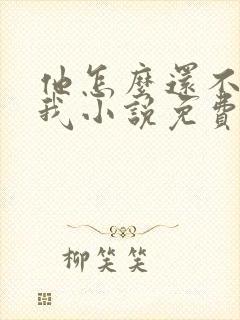 他怎麼還不
我小說免費
柳笑笑